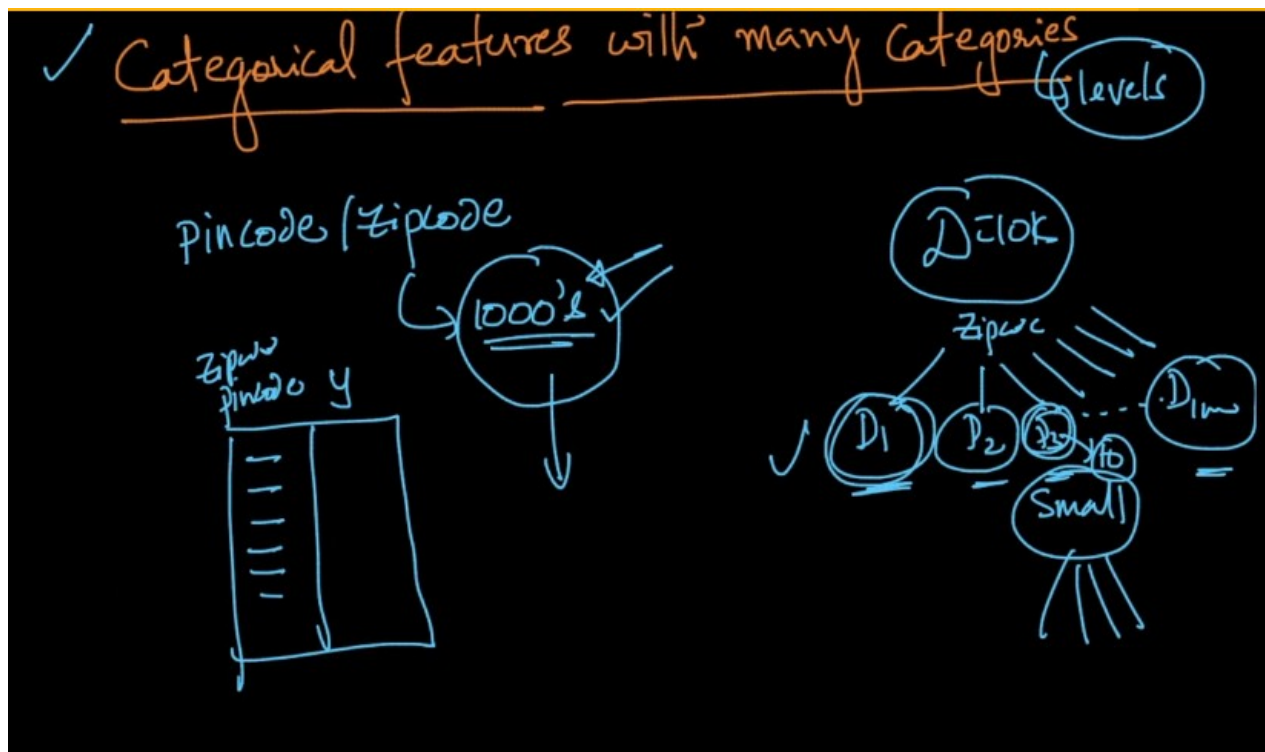 Categorical features with many Categories
levels
Pincode/Zipcode
D=10K
1000's
Zipcode
Pincode y
D1 D2 D3
10
Small